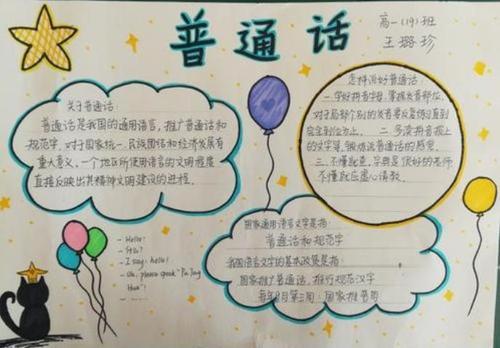 普通话
高一(19)班
王璐珍
关于普通话:
普通话是我国的通用语言,推广普通话和
规范字,对于国家统一、民族团结和经济发展有
重大意义,一个地区所使用语言的文明程度
直接反映出其精神文明建设的进程.
怎样说好普通话:
一.学好拼音字母,掌握发音部位,
对于局部个别的发音要反复练习直到
完全到位为止。二.多读拼音报上
的文字等,锻炼说普通话的感觉.
三.不懂就查,字典是很好的老师
不懂就应虚心请教.
国家通用语言文字是指:
普通话和规范字
我国语言文字的基本政策是指:
国家推广普通话,推行规范汉字
每年9月第三周:国家推普周
- Hello!
- Stu?
- I say, hello!
- Uh, please speak "Pu Tong
Hua"!
- ......